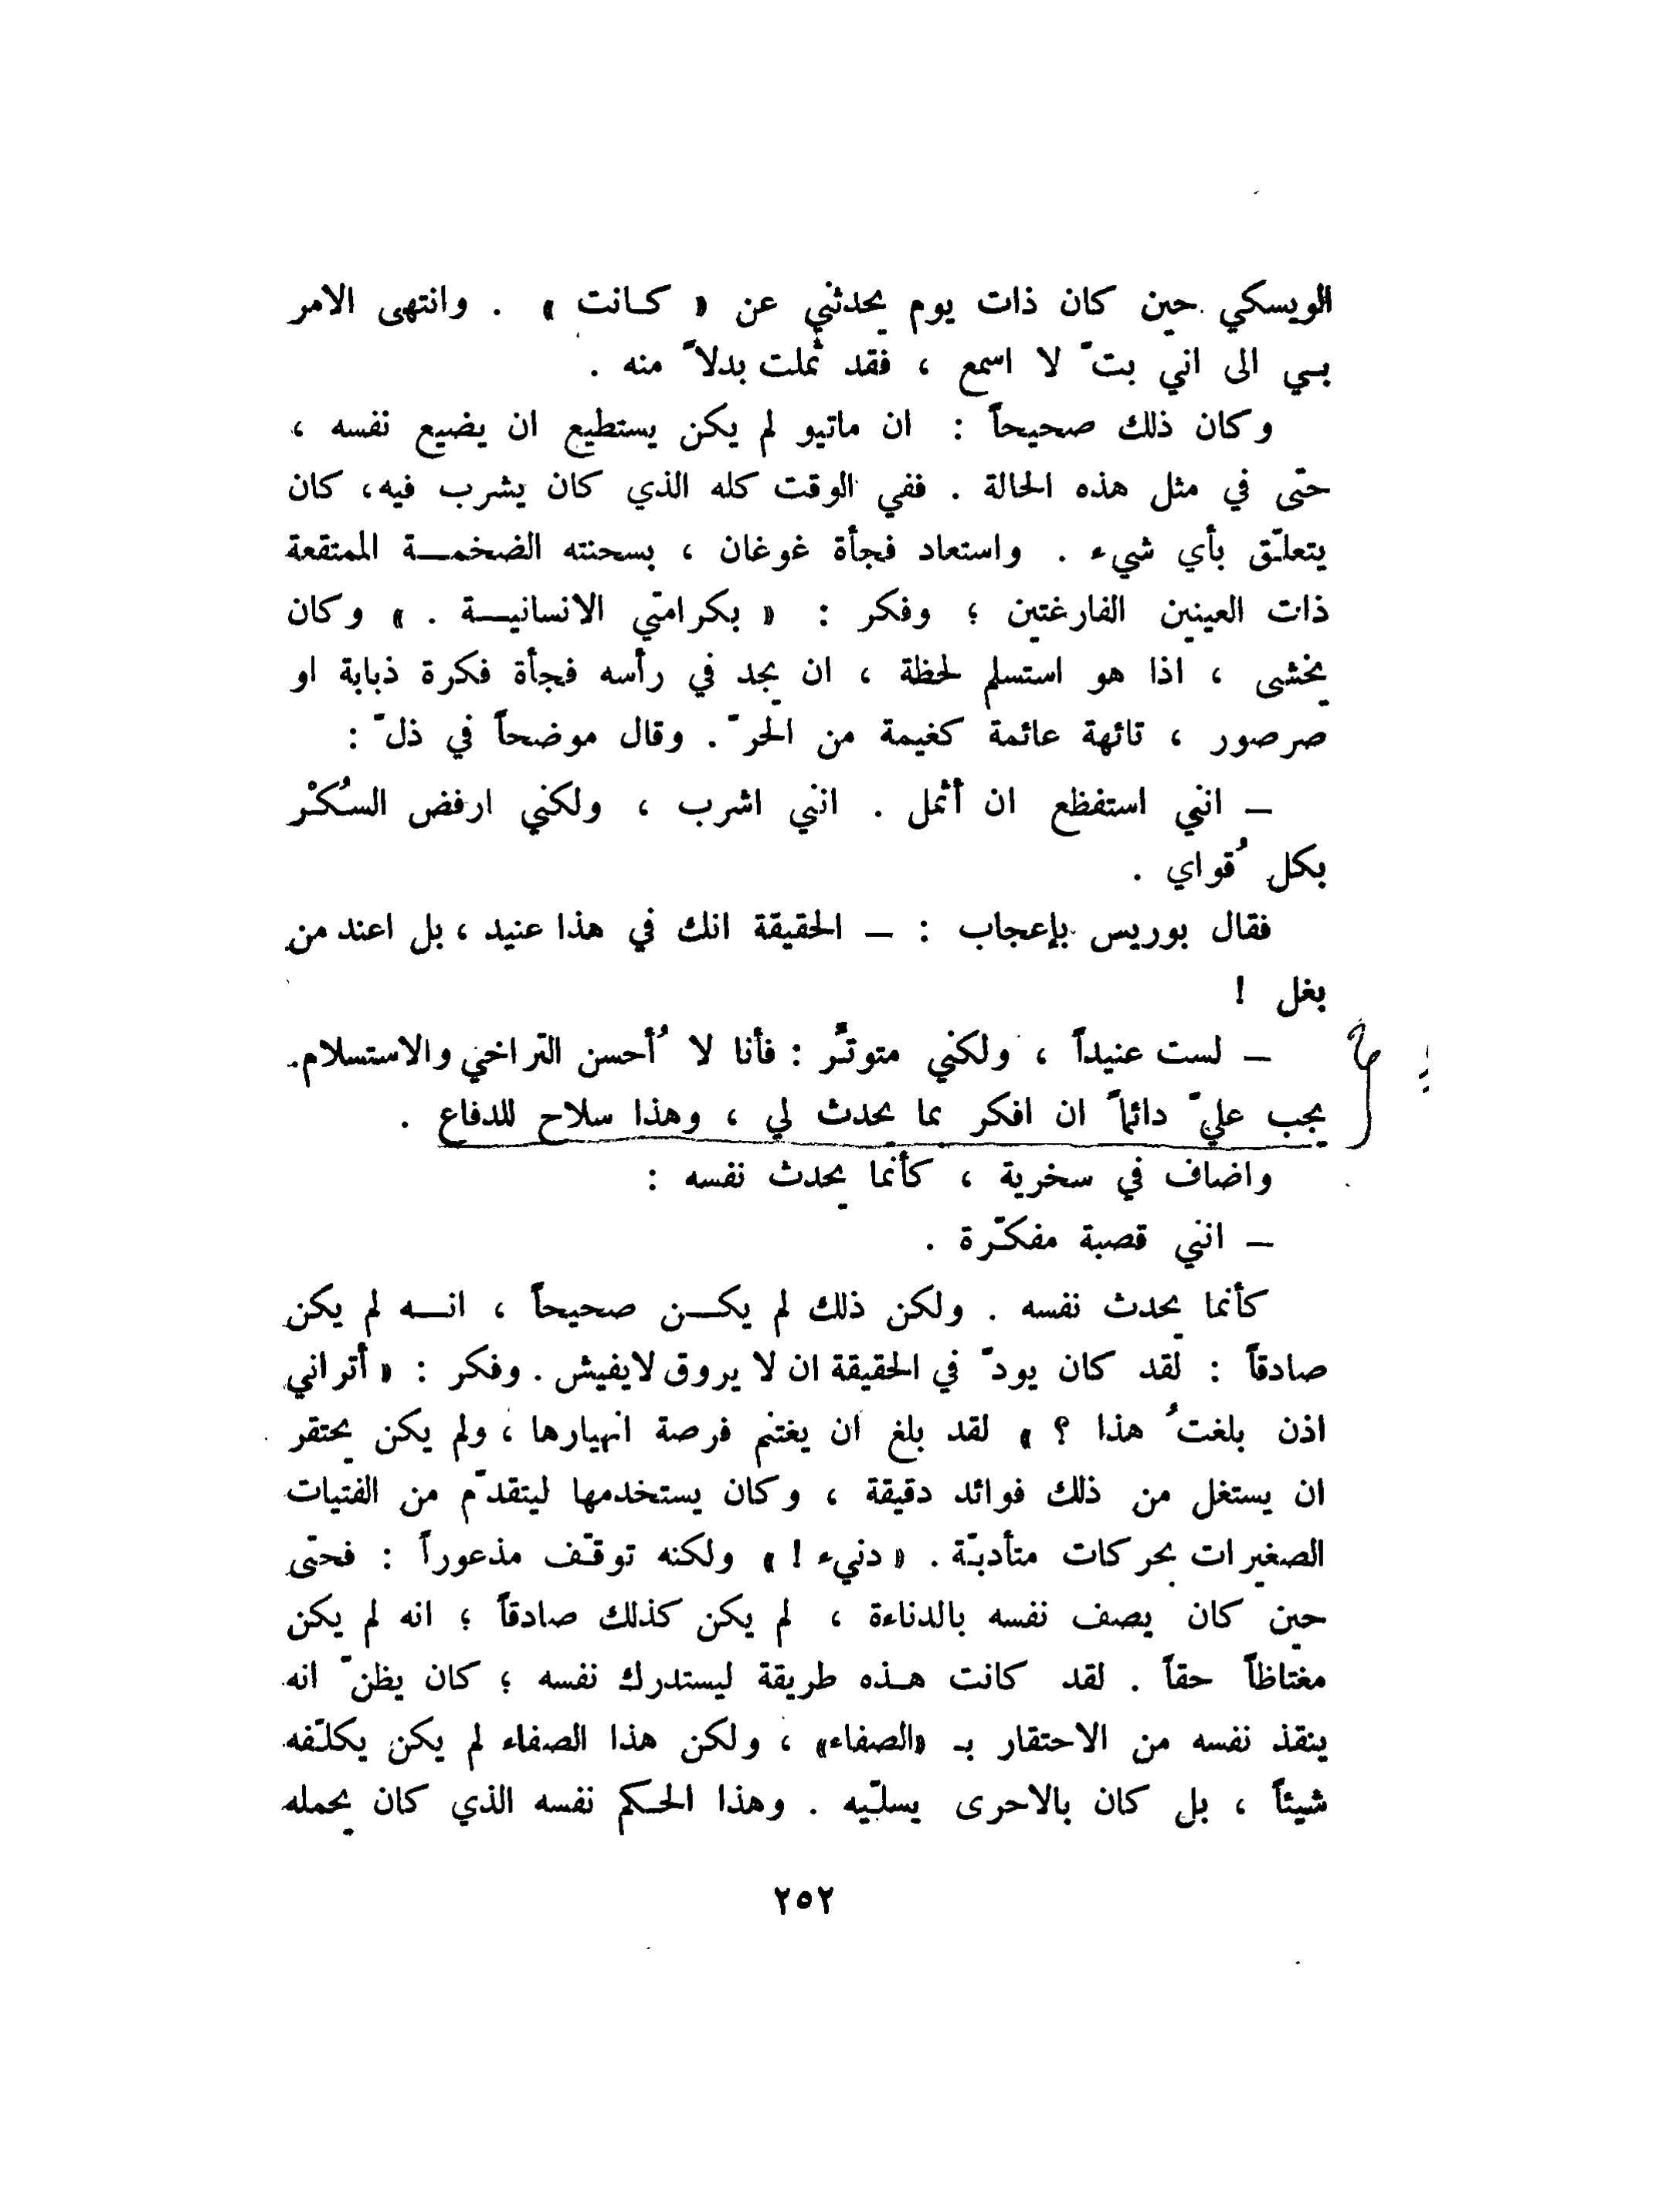 الويسكي حين كان ذات يوم يحدثني عن « كـانت » . وانتهى الامر
بـي الى اني بتّ لا اسمع ، فقد ثُملت بدلاً منه .
وكان ذلك صحيحاً : ان ماتيو لم يكن يستطيع ان يضيع نفسه ،
حتّى في مثل هذه الحالة . ففي الوقت كله الذي كان يشرب فيه، كان
يتعلّق بأي شيء . واستعاد فجأة غوغان ، بسحنته الضخمـــة الممتقعة
ذات العينين الفارغتين ؛ وفكر : « بكرامتي الانسانيـــة . » وكان
يخشى ، اذا هو استسلم لحظة ، ان يجد في رأسه فجأة فكرة ذبابة او
صرصور ، تائهة عائمة كغيمة من الحرّ . وقال موضحاً في ذلّ :
ــ انني استفظع ان أثمل . انني اشرب ، ولكني ارفض السُكْر
بكل قُواي .
فقال بوريس بإعجاب : ــ الحقيقة انك في هذا عنيد ، بل اعند من
بغل !
ــ لست عنيداً ، ولكني متوتّر : فأنا لا أُحسن التراخي والاستسلام.
يجب عليّ دائماً ان افكر بما يحدث لي ، وهذا سلاح للدفاع .
واضاف في سخرية ، كأنما يحدث نفسه :
ــ انني قصبة مفكّرة .
كأنما يحدث نفسه . ولكن ذلك لم يكـــن صحيحاً ، انـــه لم يكن
صادقاً : لقد كان يودّ في الحقيقة ان لا يروق لايفيش . وفكر : « أتراني
اذن بلغتُ هذا ؟ » لقد بلغ ان يغتنم فرصة انهيارها ، ولم يكن يحتقر
ان يستغل من ذلك فوائد دقيقة ، وكان يستخدمها ليتقدّم من الفتيات
الصغيرات بحركات متأدبّة . « دنيء ! » ولكنه توقّف مذعوراً : فحتّى
حين كان يصف نفسه بالدناءة ، لم يكن كذلك صادقاً ؛ انه لم يكن
مغتاظاً حقاً . لقد كانت هـذه طريقة ليستدرك نفسه ؛ كان يظنّ انه
ينقذ نفسه من الاحتقار بـ «الصفاء» ، ولكن هذا الصفاء لم يكن يكلّفه
شيئاً ، بل كان بالاحرى يسلّيه . وهذا الحـكم نفسه الذي كان يحمله
٢٥٢